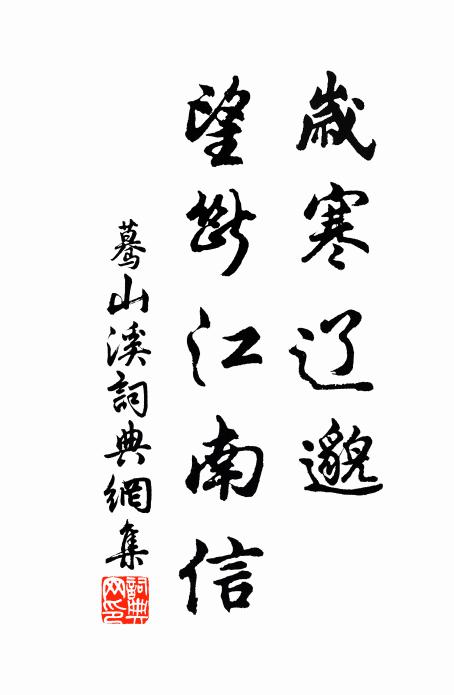 歲寒辽邈
望斷江南信
驀山溪詞典網集
詞典
网印